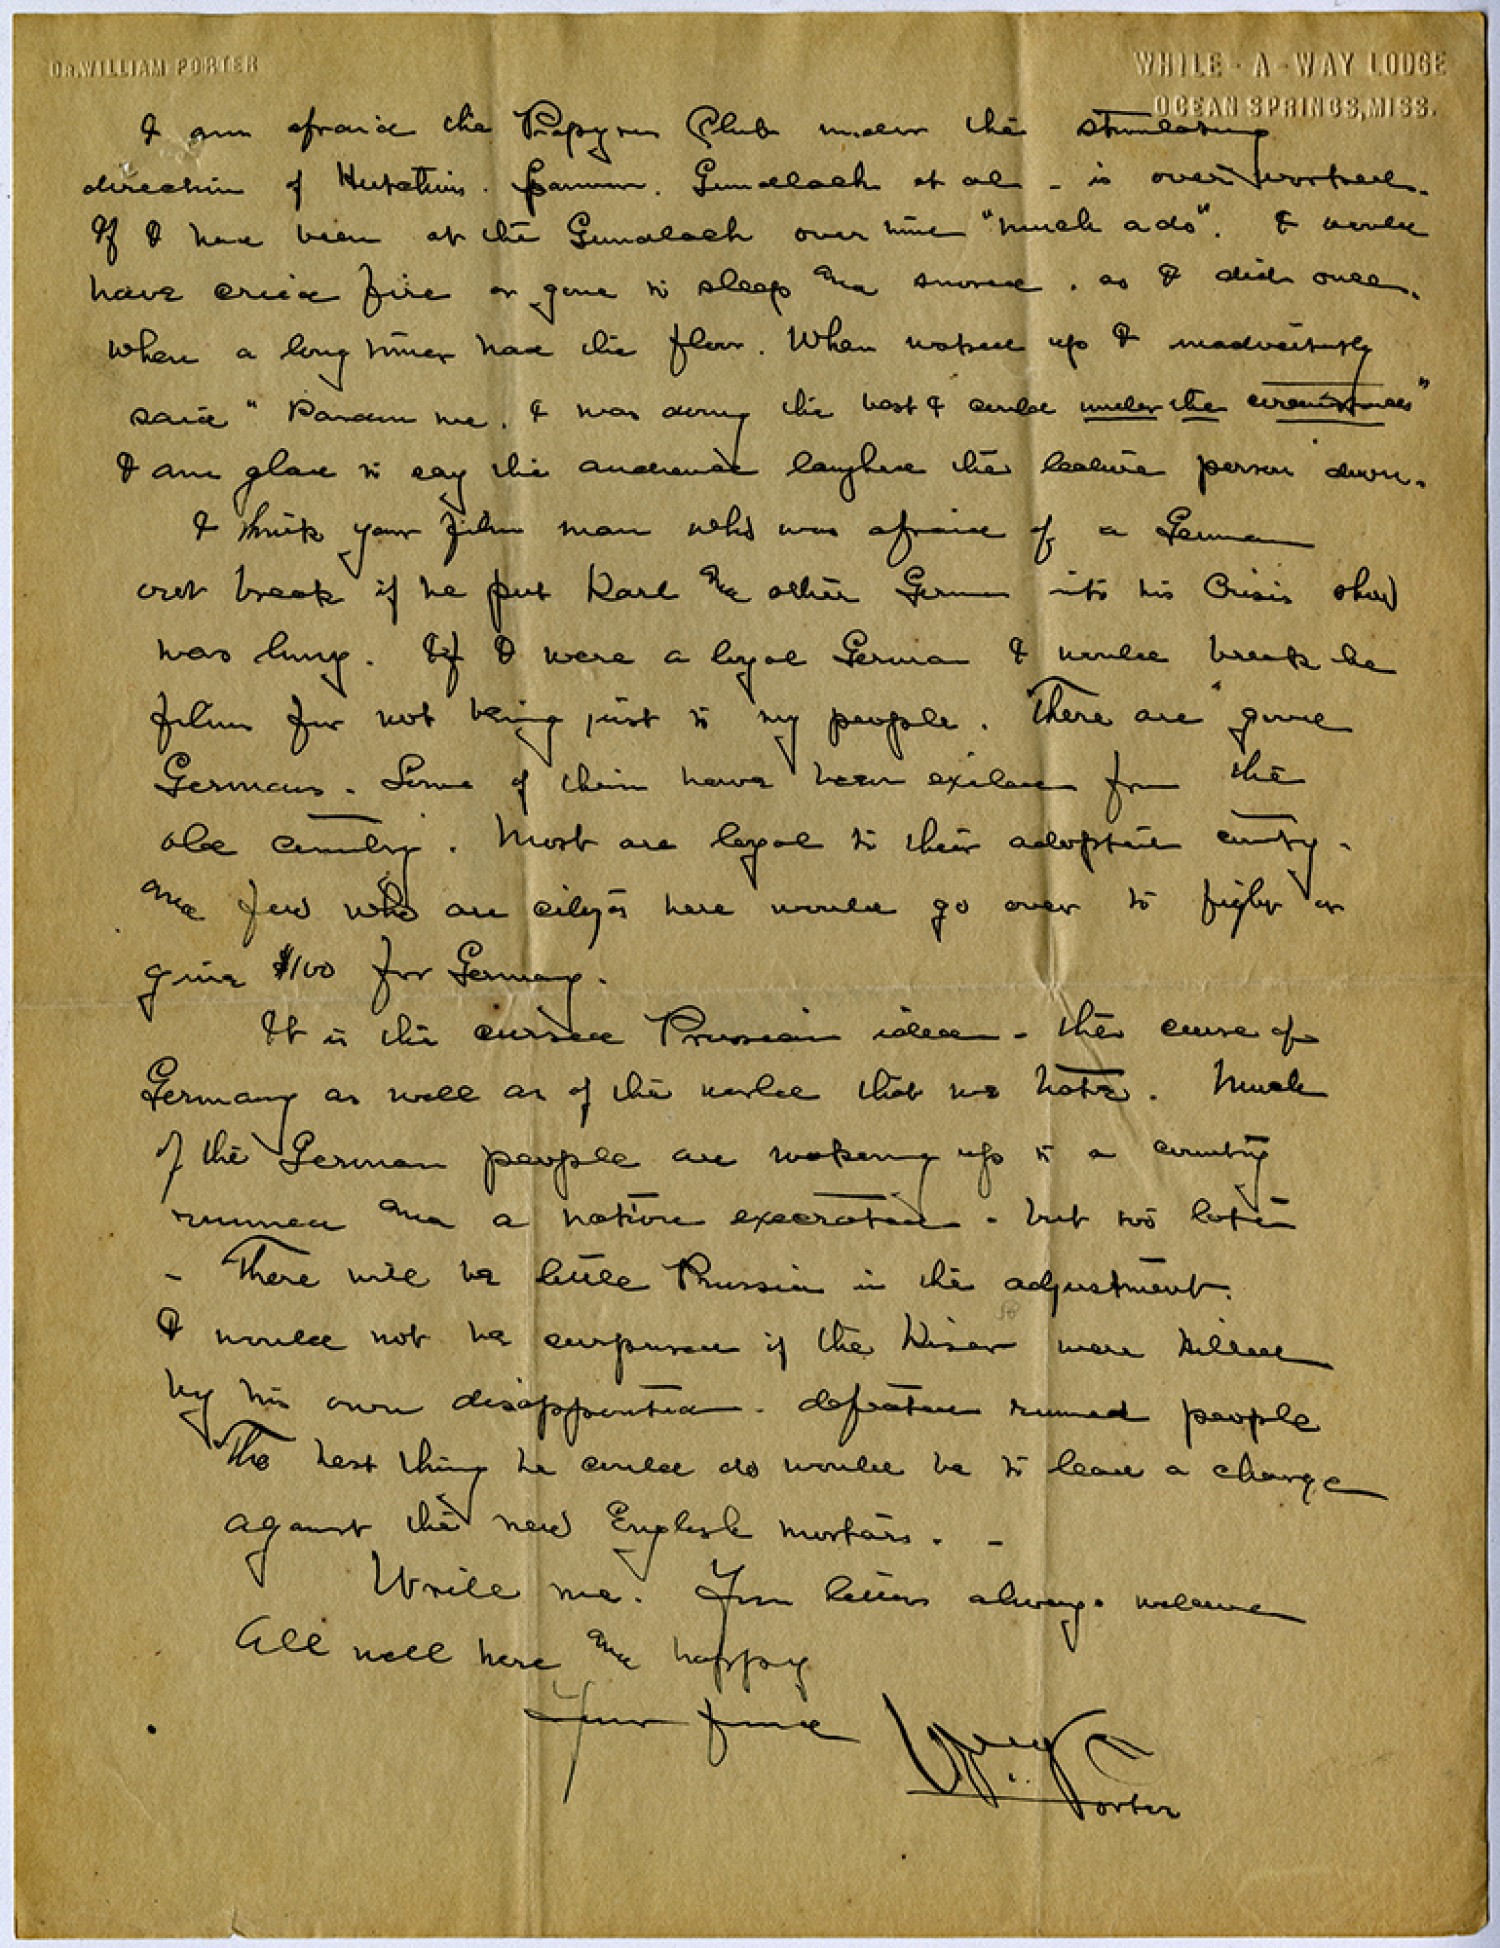 DR. WILLIAM PORTER
WHILE-A-WAY LODGE
OCEAN SPRINGS, MISS.
I am afraid the Papyrus Club under the stimulating
direction of Hutchins. Gundlach et al - is over worked.
If I had been at the Gundlach over time "much ado". I would
have cried fire or gone to sleep and snored. as I did once.
when a long timer had the floor. When waked up I inadvertently
said "Pardon me. I was doing the best I could under the circumstances"
I am glad to say the audience laughed the lecture person down.
I think your film man who was afraid of a German
break if he put Karl and other German into his Crisis show
was . If I were a loyal German I would break he
films for not being just to my people. There are "good
Germans. Some of them have been exiled from the
old country. Most are loyal to their adopted country.
and few who are here would go over to fight or
give $100 for Germany.
It is the cursed Prussian idea - the curse of
Germany as well as of the world that we hate. Much
of the German people are waking up to a country
ruined and a nation execrated - but too late
- There will be little Prussia in the adjustment.
I would not be surprised if the Kiser were killed
by his own disappointed - defeated ruined people
The best thing he could do would be to lead a charge
against the new English mortars. -
Write me. Your letters always welcome
All well here and happy
Your friend
Wm. Porter